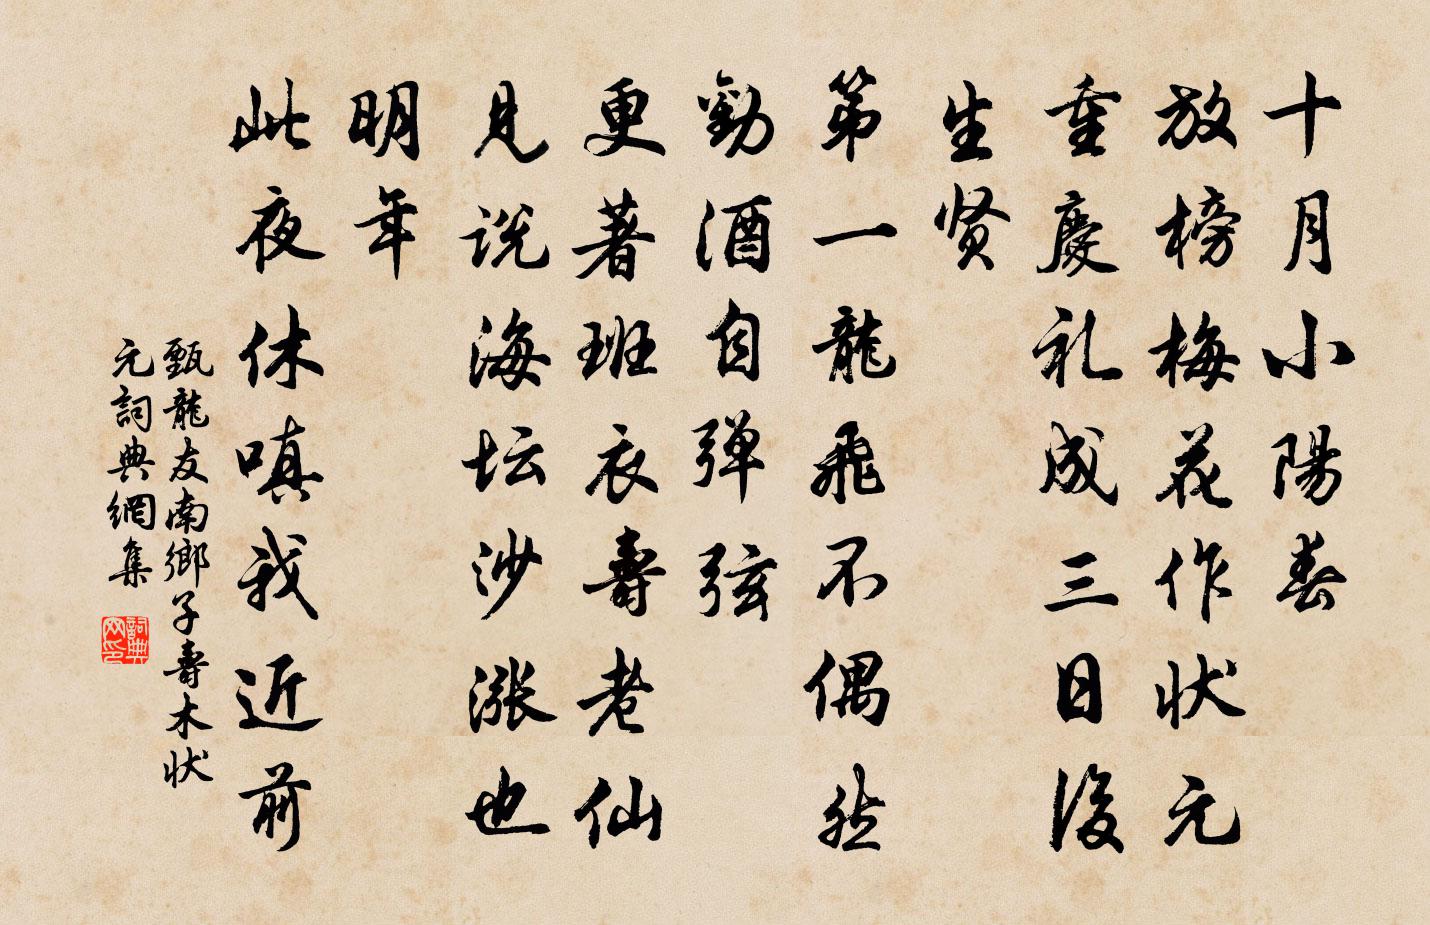 十月小陽春
放榜梅花作状元
重慶礼成三日後
生贤
第一龍飛不偶然
勸酒自弹弦
更著班衣壽老仙
見说海坛沙涨也
明年
此夜休嗔我近前
甄龍友南鄉子壽木状
元詞典網集
詞典网印